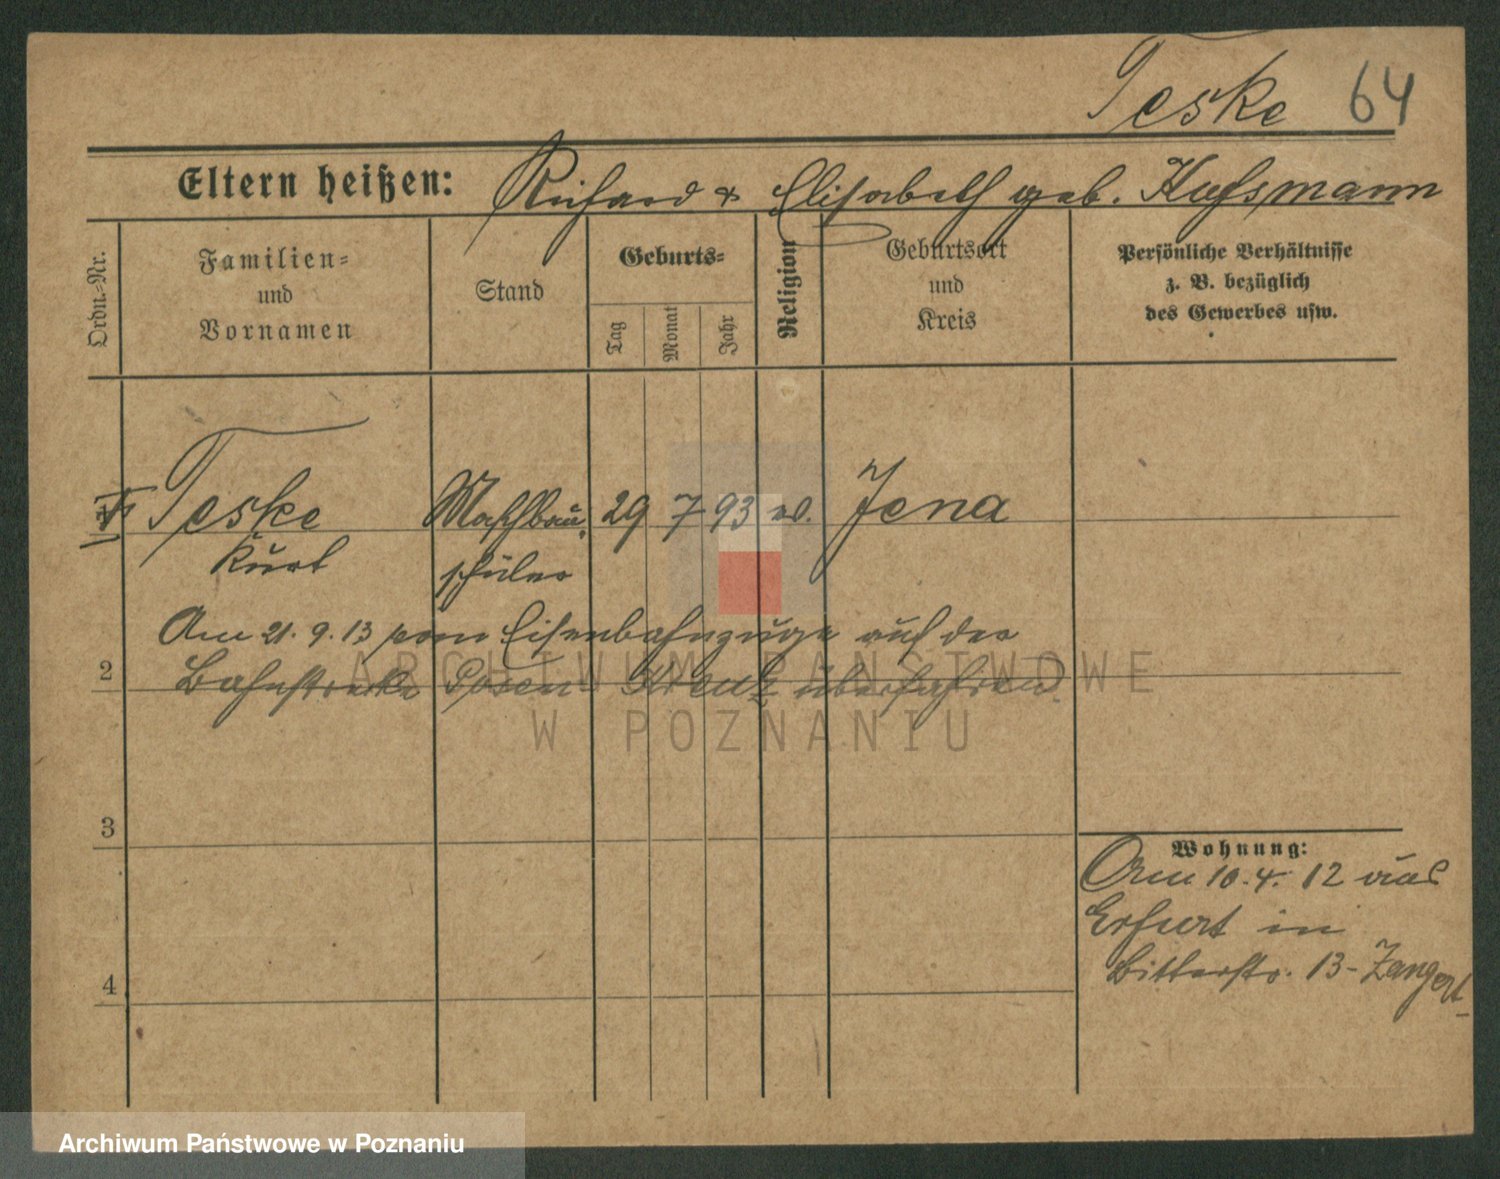 Teske 64
Eltern heißen: Richard & Elisabeth geb. Hufsmann
Ordn.-Nr.
Familien-
und
Vornamen
Stand
Geburts-
Tag
Monat
Jahr
Religion
Geburtsort
und
Kreis
Persönliche Verhältnisse
z. B. bezüglich
des Gewerbes usw.
Teske Maschbau. 29 7 93 ev. Jena
Kurt schüler
Am 21.9.13 vom Eisenbahnzuge auf der
2 Bahnstrecke Posen-Kreuz überfahren.
3
4
Wohnung:
Am 10.4.12 aus
Erfurt in
Bitterstr. 13-Zangert-
ARCHIWUM PAŃSTWOWE
W POZNANIU
Archiwum Państwowe w Poznaniu